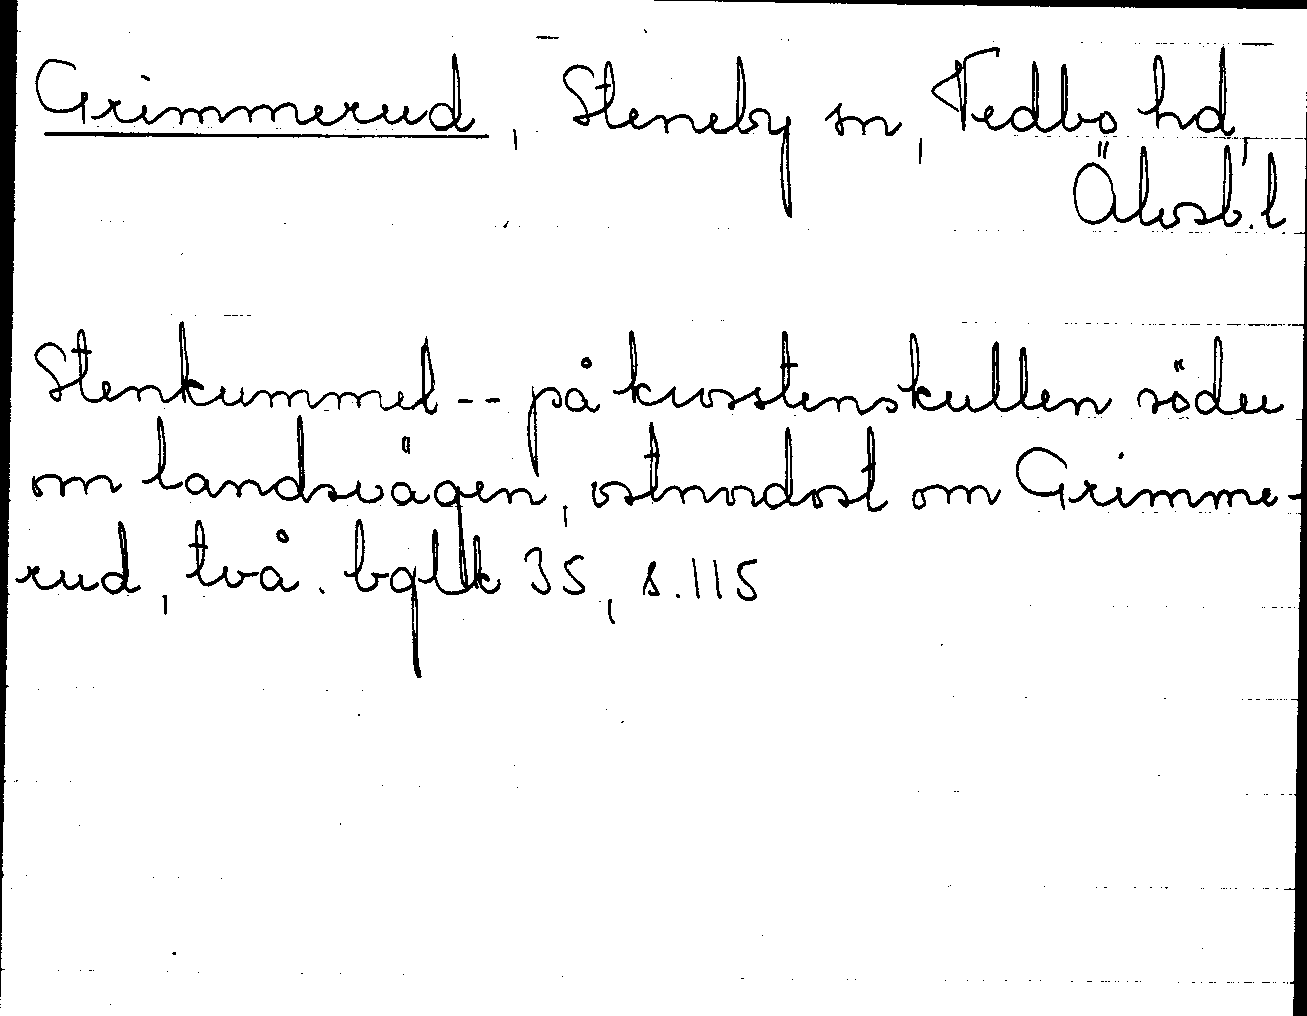 Grimmerud, Steneby sn, Vedbo hd,
Älvsb. l
Stenkummel -- på krosstenskullen söder
om landsvägen, ostnordost om Grimme-
rud, två. bglk 35, s. 115